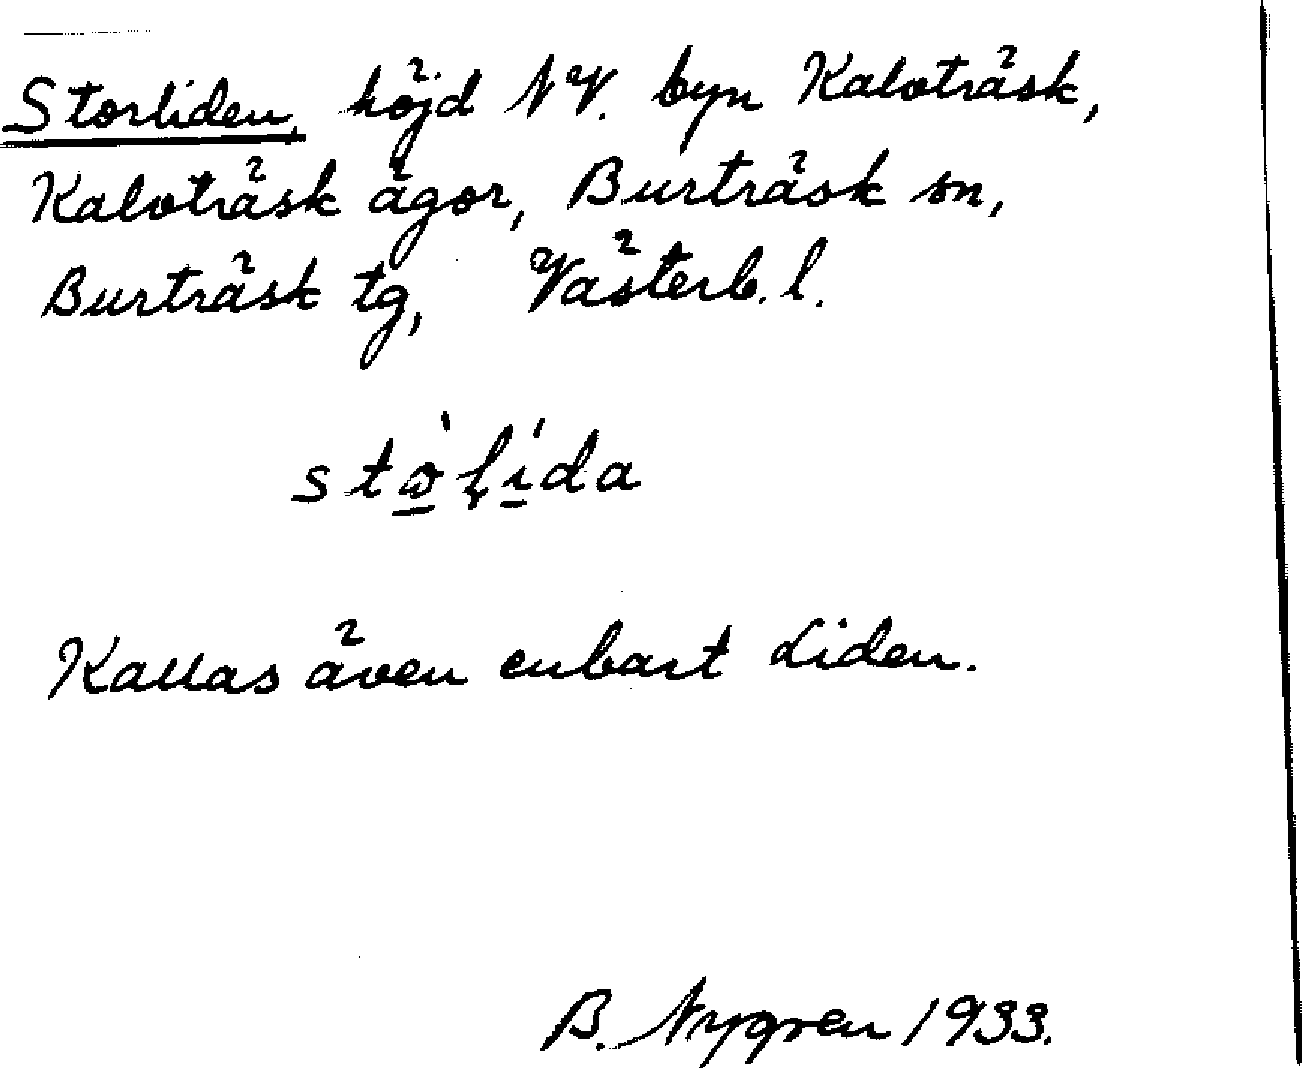 Storliden, höjd NV. byn Kalvträsk,
Kalvträsk ägor, Burträsk sn,
Burträsk tg, Västerb. l.
Kallas även enbart Liden.
B. Nygren 1933.